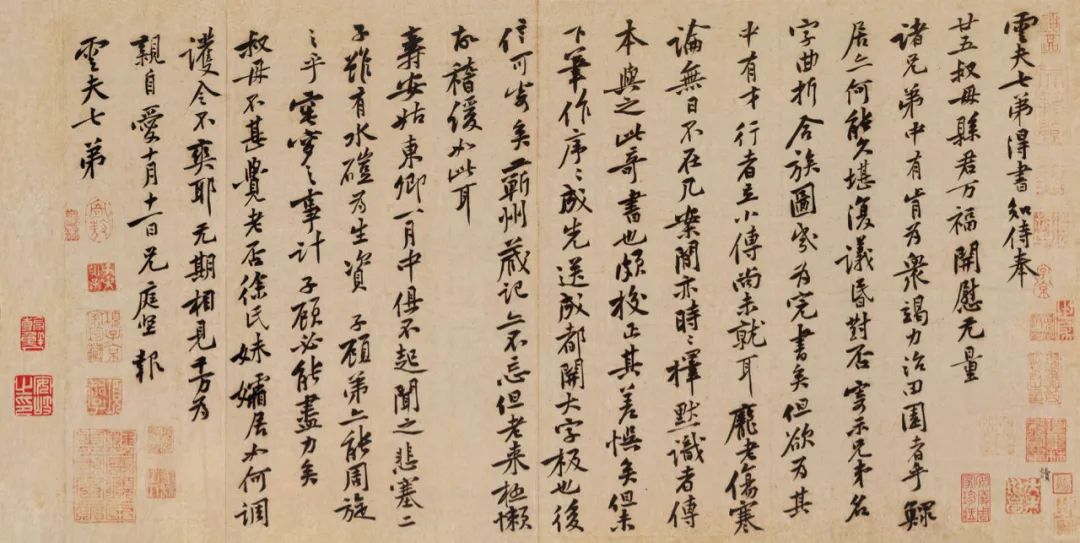 雲夫七弟得書知侍奉
廿五叔母縣君万福開慰无量
諸兄弟中有肯为衆竭力治田園者乎鰥
居亦何能久堪復議昏對否寄示兄弟名
字曲折合族圖遂为完書矣但欲为其
中有才行者立小傳尚未就耳龐老傷寒
論無日不在几案間亦時〻擇默識者傳
本與之此奇書也頗校正其差悞矣但未
下筆作序〻成先送成都開大字板也後
信可寄矣蘄州藏記亦不忘但老来極懶
故稽緩如此耳
壽安姑東卿一月中俱不起聞之悲塞二
子雖有水磑为生資子顧弟亦能周旋
之乎窀穸之事計子顧必能盡力矣
叔母不甚覺老否徐氏妹孀居如何調
護令不爽耶无期相見千万为
親自愛十月十一日兄庭堅報
雲夫七弟